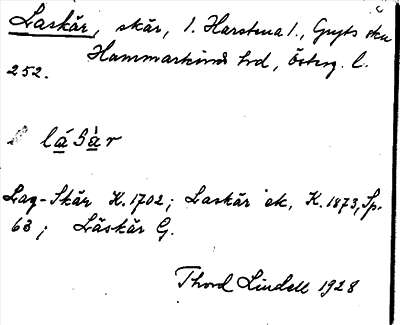 Laskär, skär, l. Harstena l., Gryts sku
Hammarkinds hrd, Österg. l.
252.
låsàr
Lag-Skär K. 1702; Laskär ek, K. 1873, Sp.
63; Läskär G.
Thord Lindell 1928